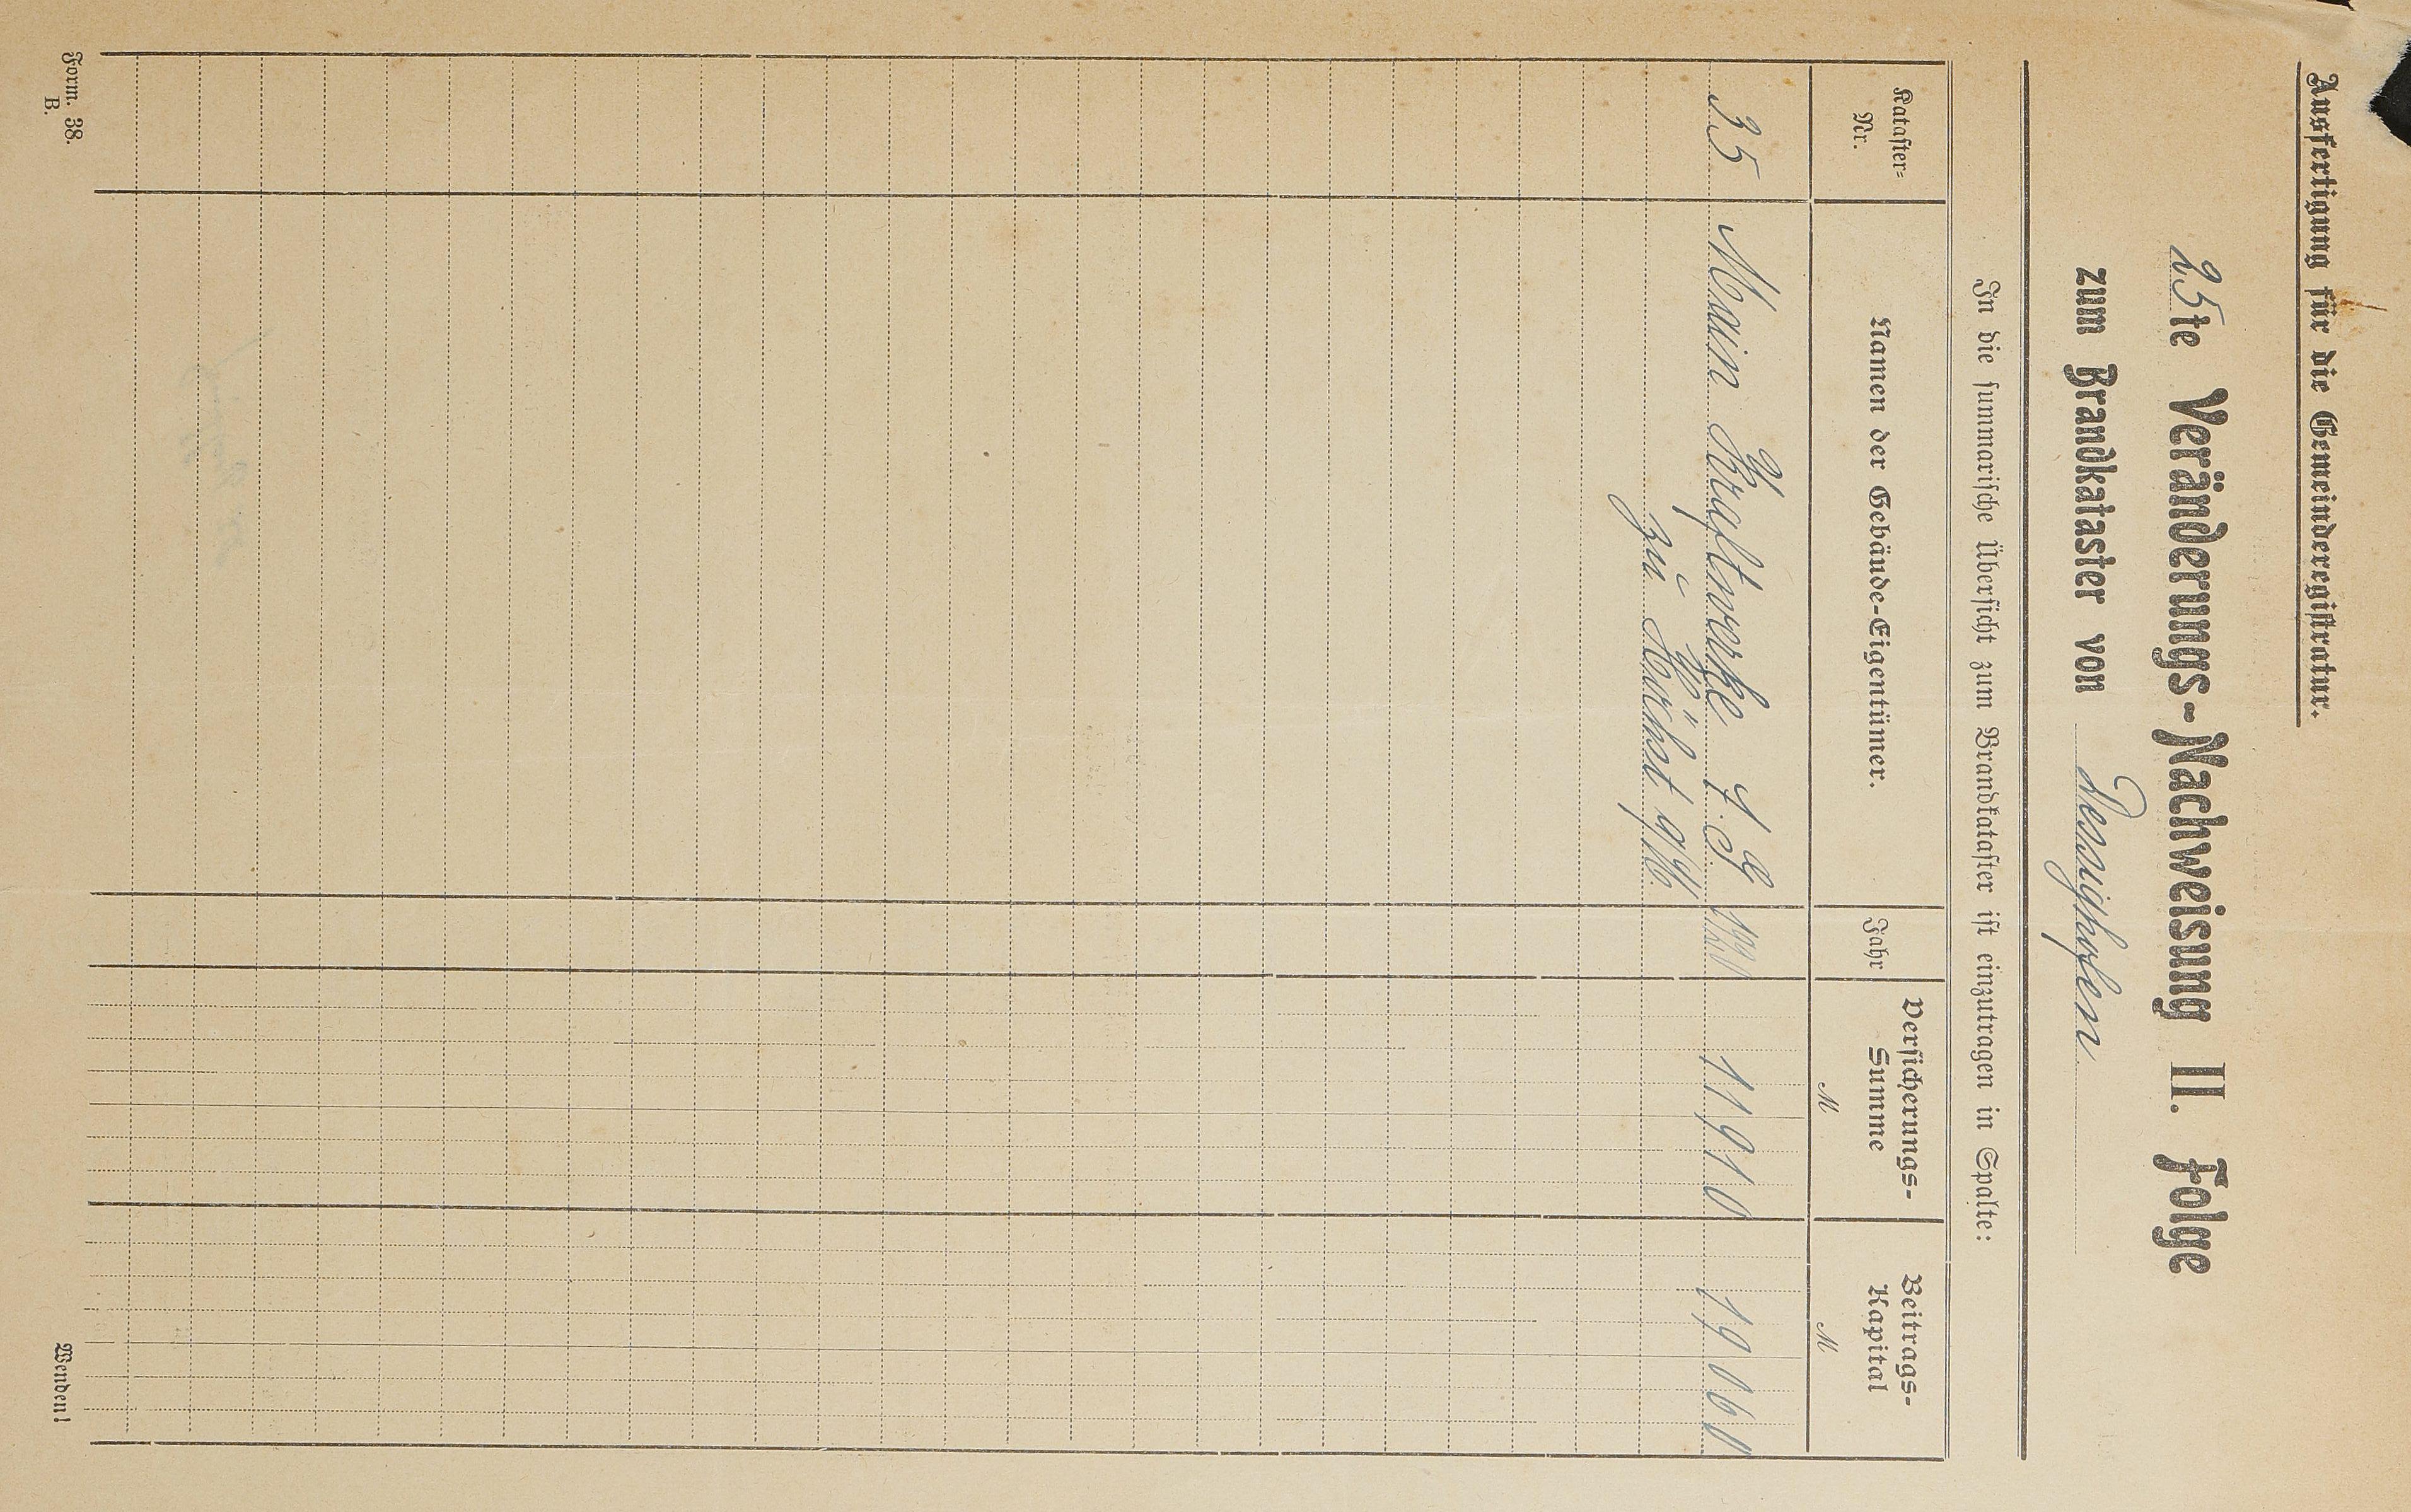 Ausfertigung für die Gemeinderegistratur.
25te Veränderungs-Nachweisung II. Folge
zum Brandkataster von Dessighofen.
In die summarische Übersicht zum Brandkataster ist einzutragen in Spalte:
Kataster-Nr.
Namen der Gebäude-Eigentümer.
Jahr
Versicherungs-Summe
M
Beitrags-Kapital
M
35 Main Kraftwerke A. G. 11910 19060
zu Höchst a/M.
Form. 38.
B.
Wenden!